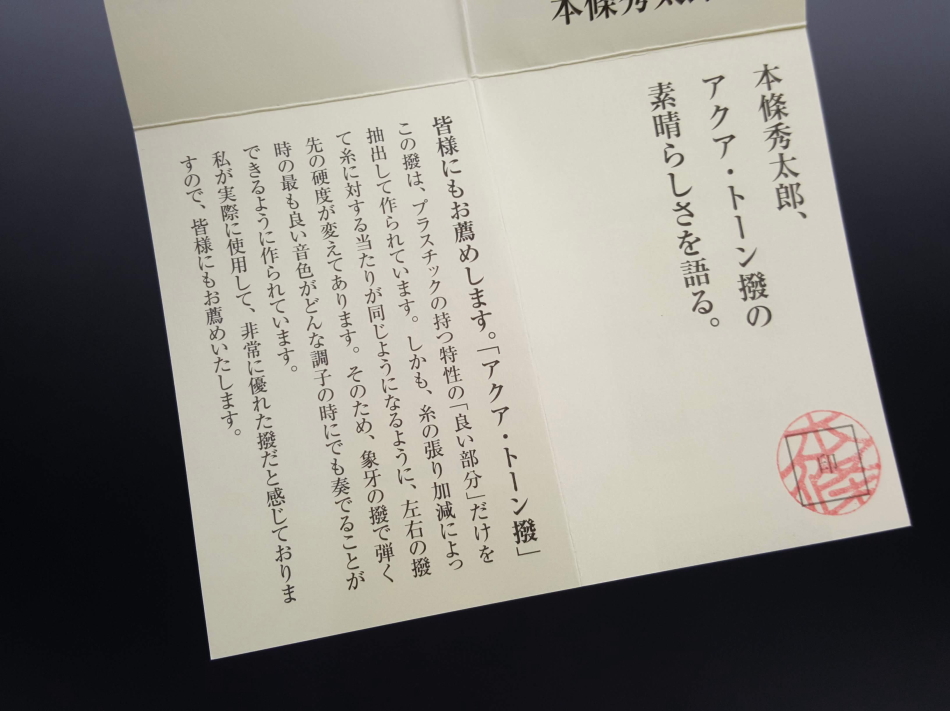 本條秀太郎
本條秀太郎、
アクア・トーン撥の
素晴らしさを語る。
本條
印
皆様にもお薦めします。「アクア・トーン撥」
この撥は、プラスチックの持つ特性の「良い部分」だけを
抽出して作られています。しかも、糸の張り加減によっ
て糸に対する当たりが同じようになるように、左右の撥
先の硬度が変えてあります。そのため、象牙の撥で弾く
時の最も良い音色がどんな調子の時にでも奏でることが
できるように作られています。
私が実際に使用して、非常に優れた撥だと感じておりま
すので、皆様にもお薦めいたします。